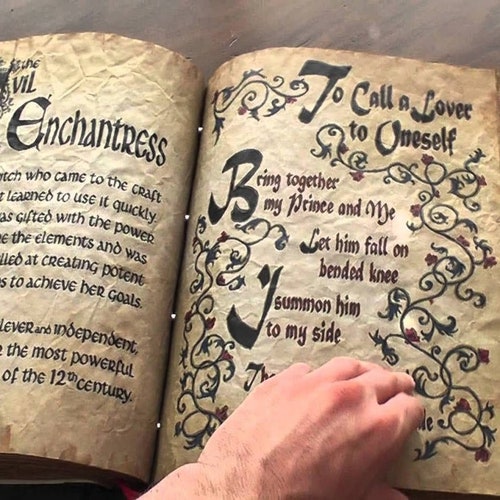 the
Evil
Enchantress
who came to the craft
learned to use it quickly.
was gifted with the power
the elements and was
at creating potent
to achieve her goals.
and independent,
the most powerful
of the 12th century.
To Call a Lover
to Oneself
Bring together
my Prince and Me
Let him fall on
bended knee
I summon him
to my side